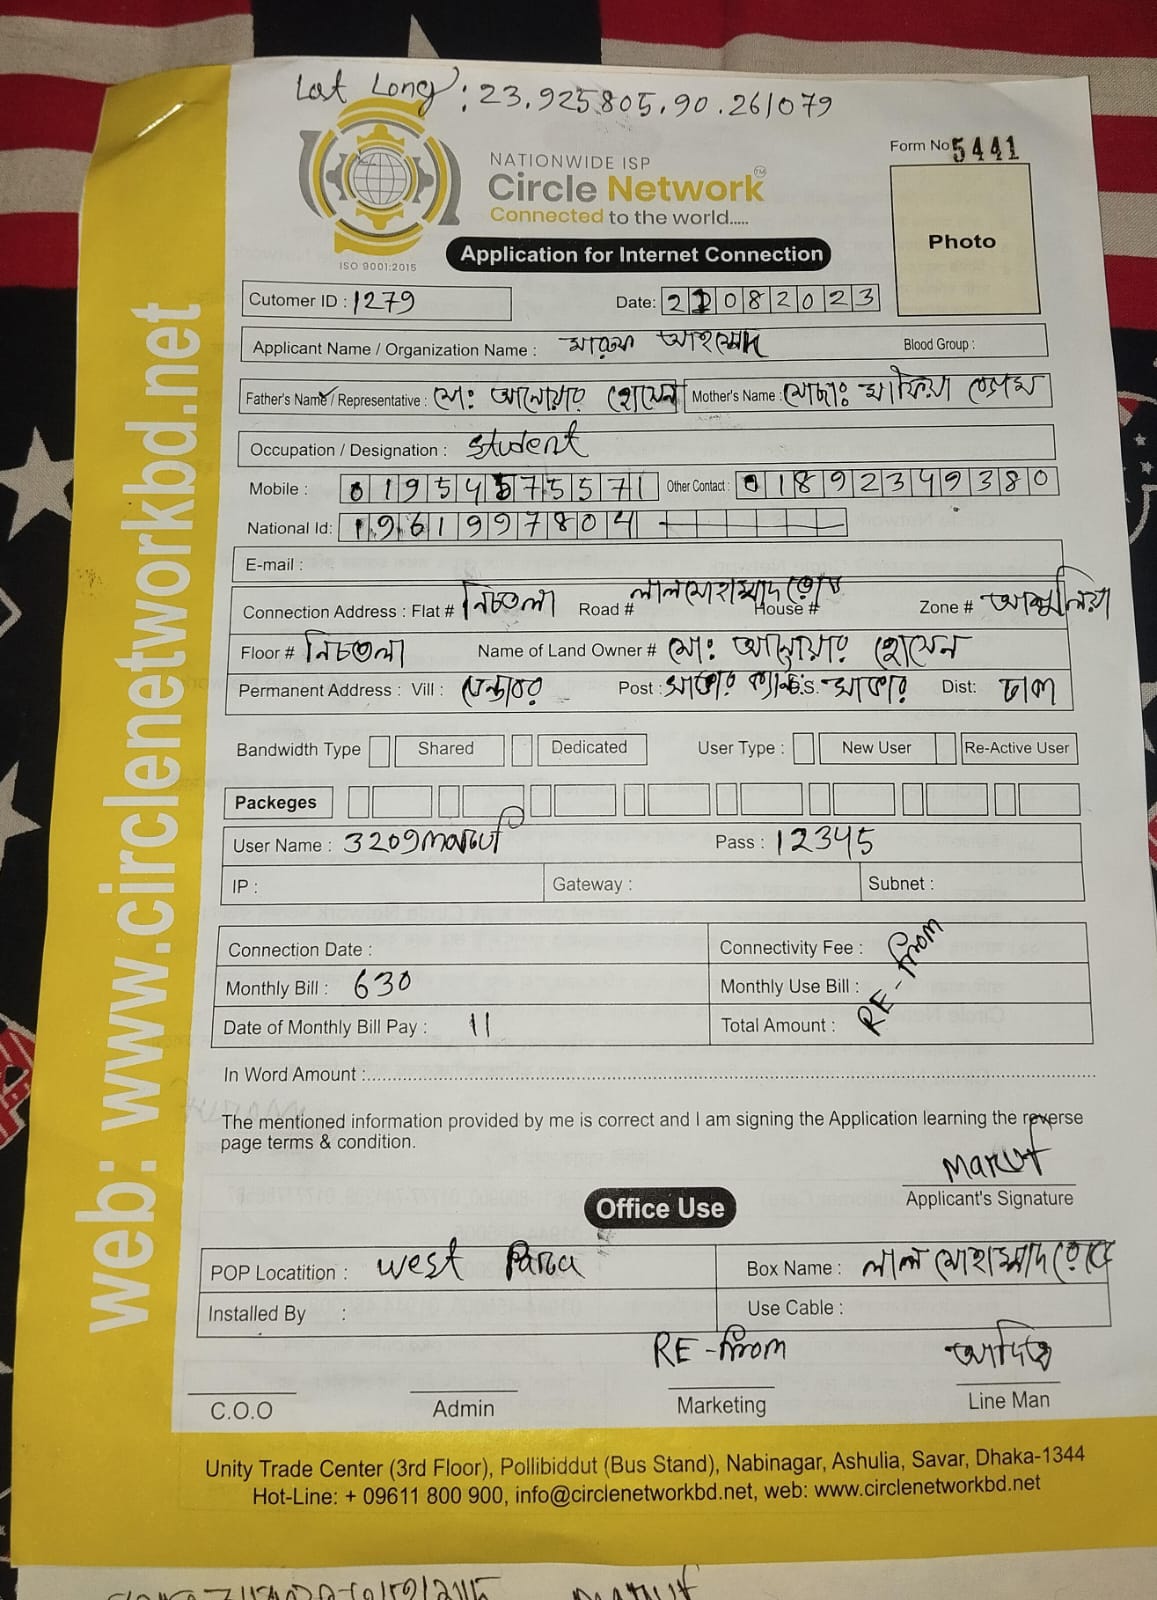 Lat Long: 23.925805, 90.261079
NATIONWIDE ISP
Circle Network TM
Connected to the world.....
ISO 9001:2015
Application for Internet Connection
Form No 5441
Photo
Cutomer ID : 1279 Date: 21082023
Applicant Name / Organization Name : মারুফ আহম্মেদ Blood Group :
Father's Name / Representative : মোঃ আনোয়ার হোসেন Mother's Name : মোছাঃ মাফিয়া বেগম
Occupation / Designation : Student
Mobile : 01954575571 Other Contact : 01892349380
National Id: 1961997804
E-mail :
Connection Address : Flat # নিচতলা Road # লালমোহাম্মদ রোড House # Zone # আশুলিয়া
Floor # নিচতলা Name of Land Owner # মোঃ আনোয়ার হোসেন
Permanent Address : Vill : Post : সাভার ক্যান্ট P.S. সাভার Dist: ঢাকা
Bandwidth Type Shared Dedicated User Type : New User Re-Active User
Packeges
User Name : 3209maruf Pass : 12345
IP : Gateway : Subnet :
Connection Date : Connectivity Fee :
Monthly Bill : 630 Monthly Use Bill :
Date of Monthly Bill Pay : 11 Total Amount :
RE-from
In Word Amount :
The mentioned information provided by me is correct and I am signing the Application learning the reverse
page terms & condition.
Maruf
Applicant's Signature
Office Use
POP Locatition : West Para Box Name : লাল মোহাম্মদ রোড
Installed By : Use Cable :
RE-from
C.O.O Admin Marketing Line Man
Unity Trade Center (3rd Floor), Pollibiddut (Bus Stand), Nabinagar, Ashulia, Savar, Dhaka-1344
Hot-Line: + 09611 800 900, info@circlenetworkbd.net, web: www.circlenetworkbd.net
web: www.circlenetworkbd.net